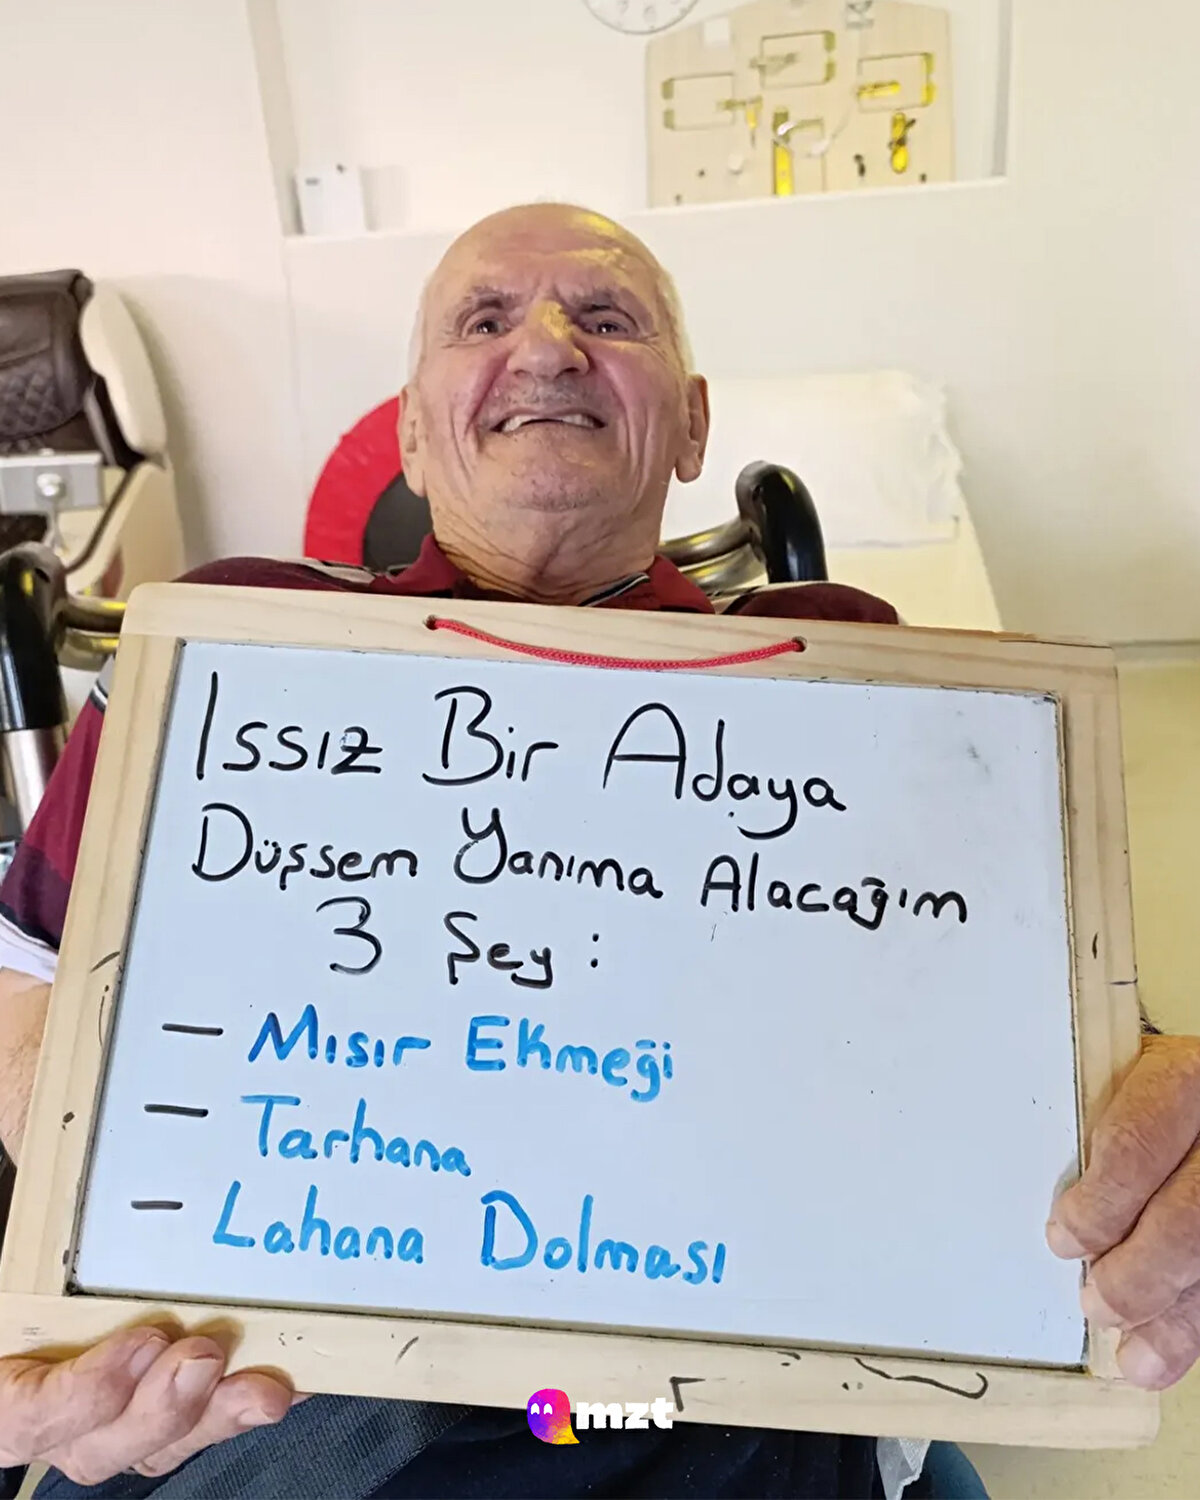 Issız Bir Adaya
Düşsem Yanıma Alacağım
3 Şey :
- Mısır Ekmeği
- Tarhana
- Lahana Dolması
mzt